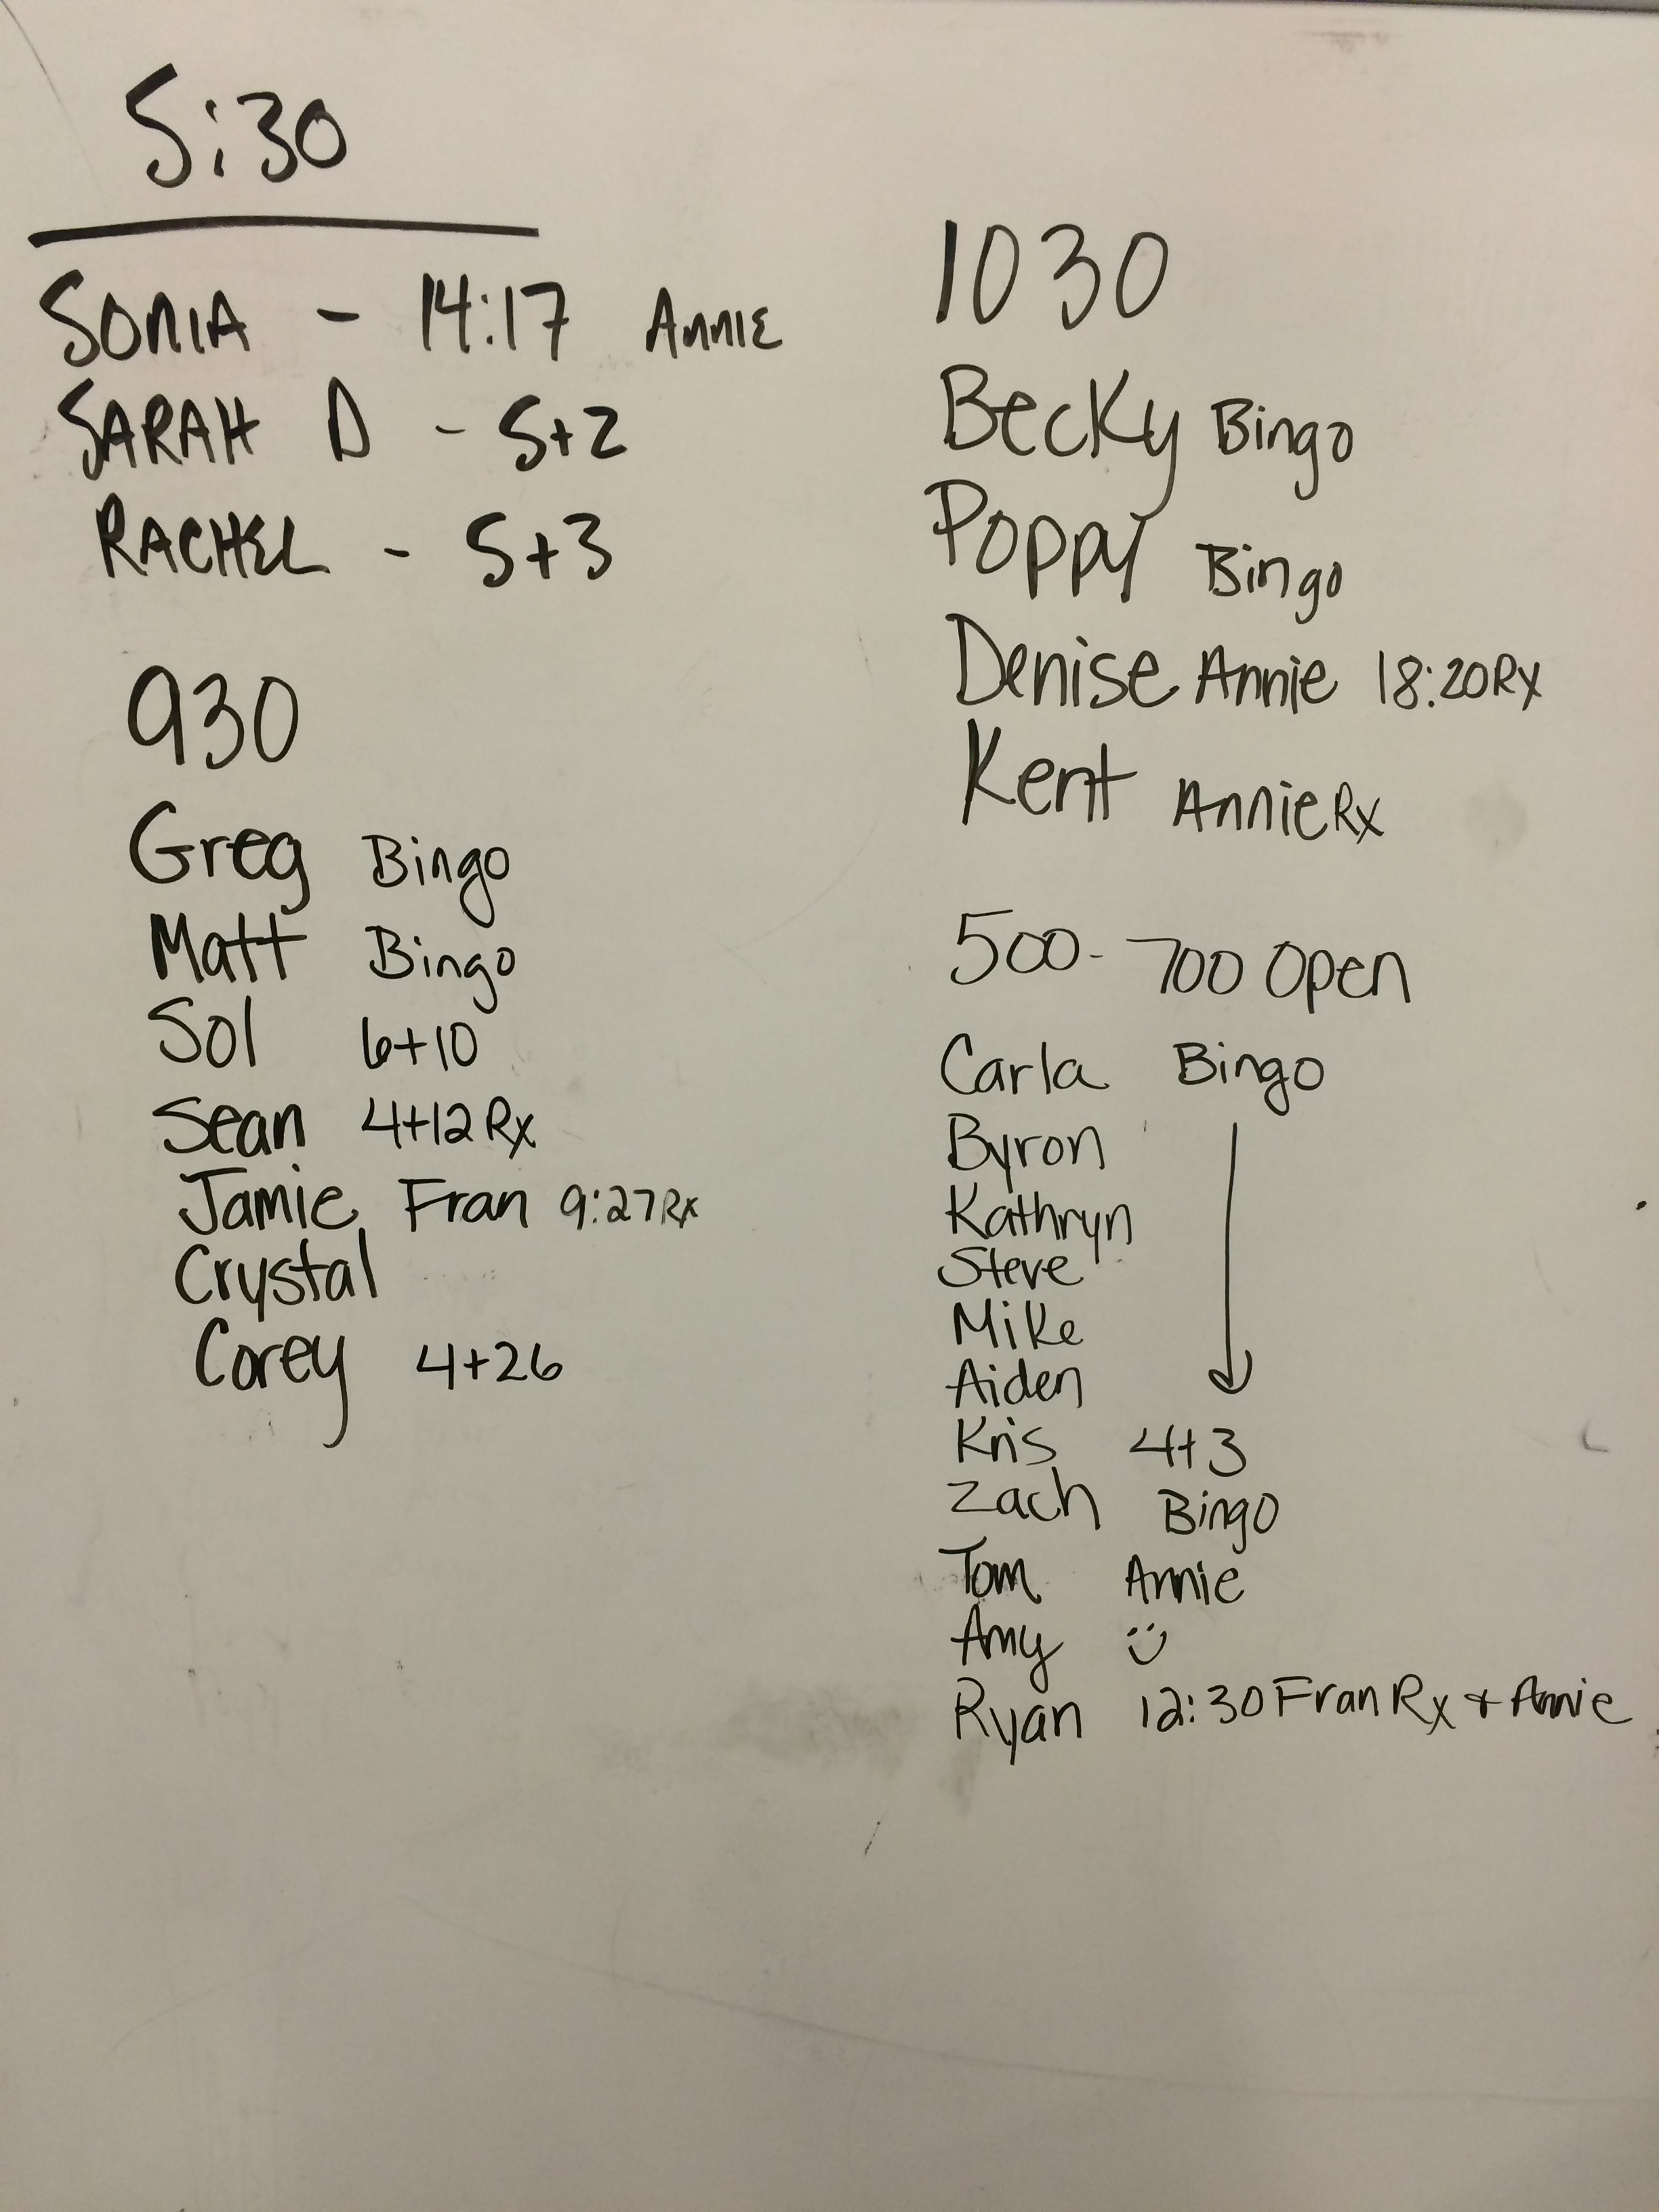 5:30
SONIA - 14:17 ANNIE
SARAH D - 5+2
RACHEL - 5+3
930
Greg Bingo
Matt Bingo
Sol 6+10
Sean 4+12 Rx
Jamie Fran 9:27 Rx
Crystal
Corey 4+26
1030
Becky Bingo
Poppy Bingo
Denise Annie 18:20 Rx
Kent Annie Rx
500-700 Open
Carla Bingo
Byron
Kathryn
Steve
Mike
Aiden
Kris 4+3
Zach Bingo
Tom Annie
Amy
Ryan 12:30 Fran Rx + Annie